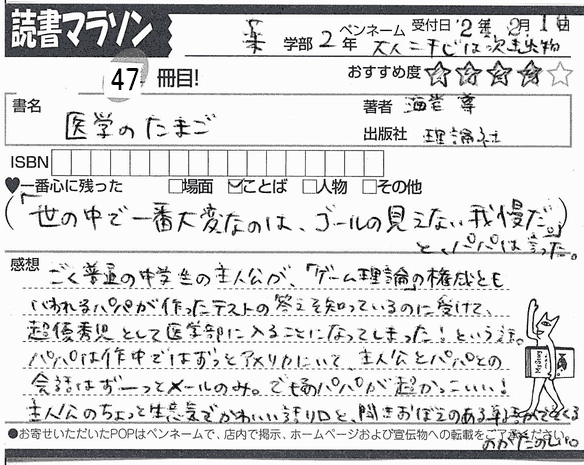 読書マラソン
薬 学部 2 年 ペンネーム 大人ニキビは次走出物 受付日 '2 年 2月 1日
47 冊目!
おすすめ度 ☆☆☆☆☆
書名 医学のたまご
著者 海堂 尊
出版社 理論社
ISBN
♥一番心に残った □場面 ☑ことば □人物 □その他
(「世の中で一番大変なのは、ゴールの見えない我慢だ。」)
と、パパは言った。
感想
ごく普通の中学生の主人公が、「ゲーム理論」の権威とも
いわれるパパが作ったテストの答えを知っているのに受けて、
超優秀児として医学部に入ることになってしまった!という話。
パパは作中ではずっとアメリカにいて、主人公とパパとの
会話はずーっとメールのみ。でもパパが超かっこいい!
主人公のちょっと生意気でかわいい語り口と、聞きおぼえのある
のがたのしい。
●お寄せいただいたPOPはペンネームで、店内で掲示、ホームページおよび宣伝物への転載をご了承ください。